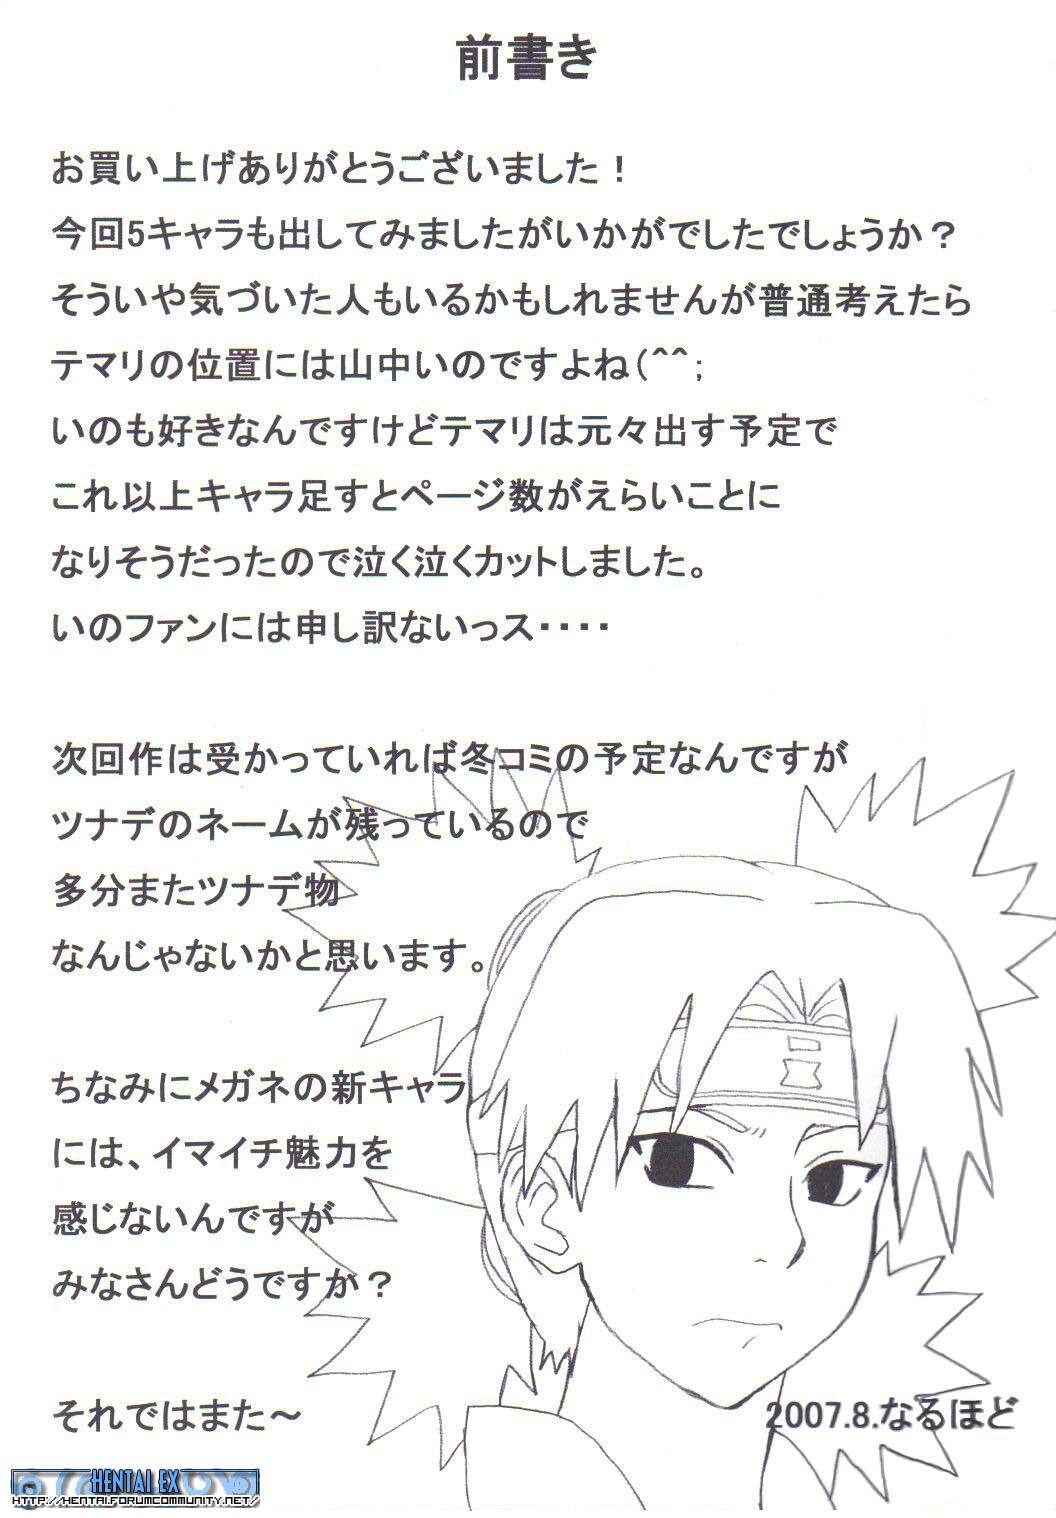 前書き
お買い上げありがとうございました！
今回5キャラも出してみましたがいかがでしたでしょうか？
そういや気づいた人もいるかもしれませんが普通考えたら
テマリの位置には山中いのですよね(^^;
いのも好きなんですけどテマリは元々出す予定で
これ以上キャラ足すとページ数がえらいことに
なりそうだったので泣く泣くカットしました。
いのファンには申し訳ないっス････
次回作は受かっていれば冬コミの予定なんですが
ツナデのネームが残っているので
多分またツナデ物
なんじゃないかと思います。
ちなみにメガネの新キャラ
には、イマイチ魅力を
感じないんですが
みなさんどうですか？
それではまた～
2007.8.なるほど
HENTAI EX
HTTP://HENTAI.FORUMCOMMUNITY.NET/